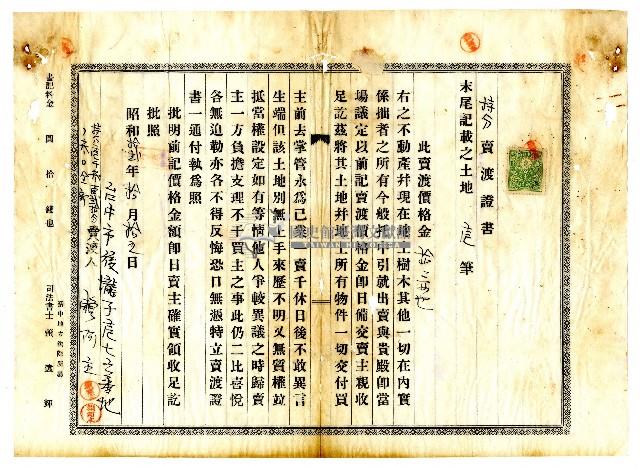 持分賣渡證書
末尾記載之土地 筆
此賣渡價格金
右之不動產幷現在地上樹木其他一切在內實
係拙者之所有今般托中引就出賣與貴殿卽當
場議定以前記賣渡價格金卽日備交賣主親收
足訖茲將其土地幷地上所有物件一切交付買
主前去掌管永為己業一賣千休日後不敢異言
生端但該土地別無上手來歷不明又無質權並
抵當權設定如有等情他人爭較異議之時歸賣
主一方負擔支理不干買主之事此仍二比喜悅
各無迫勒亦各不得反悔恐口無憑特立賣渡證
書一通付執為照
批明前記價格金額卽日賣主確實領收足訖
批照
昭和 年拾月 日
台中市後壠子 番地
賣渡人
書記料金 四拾錢也
臺中地方法院所屬
司法書士 張 輝
國史館臺灣文獻館
TAIWAN HISTORICA